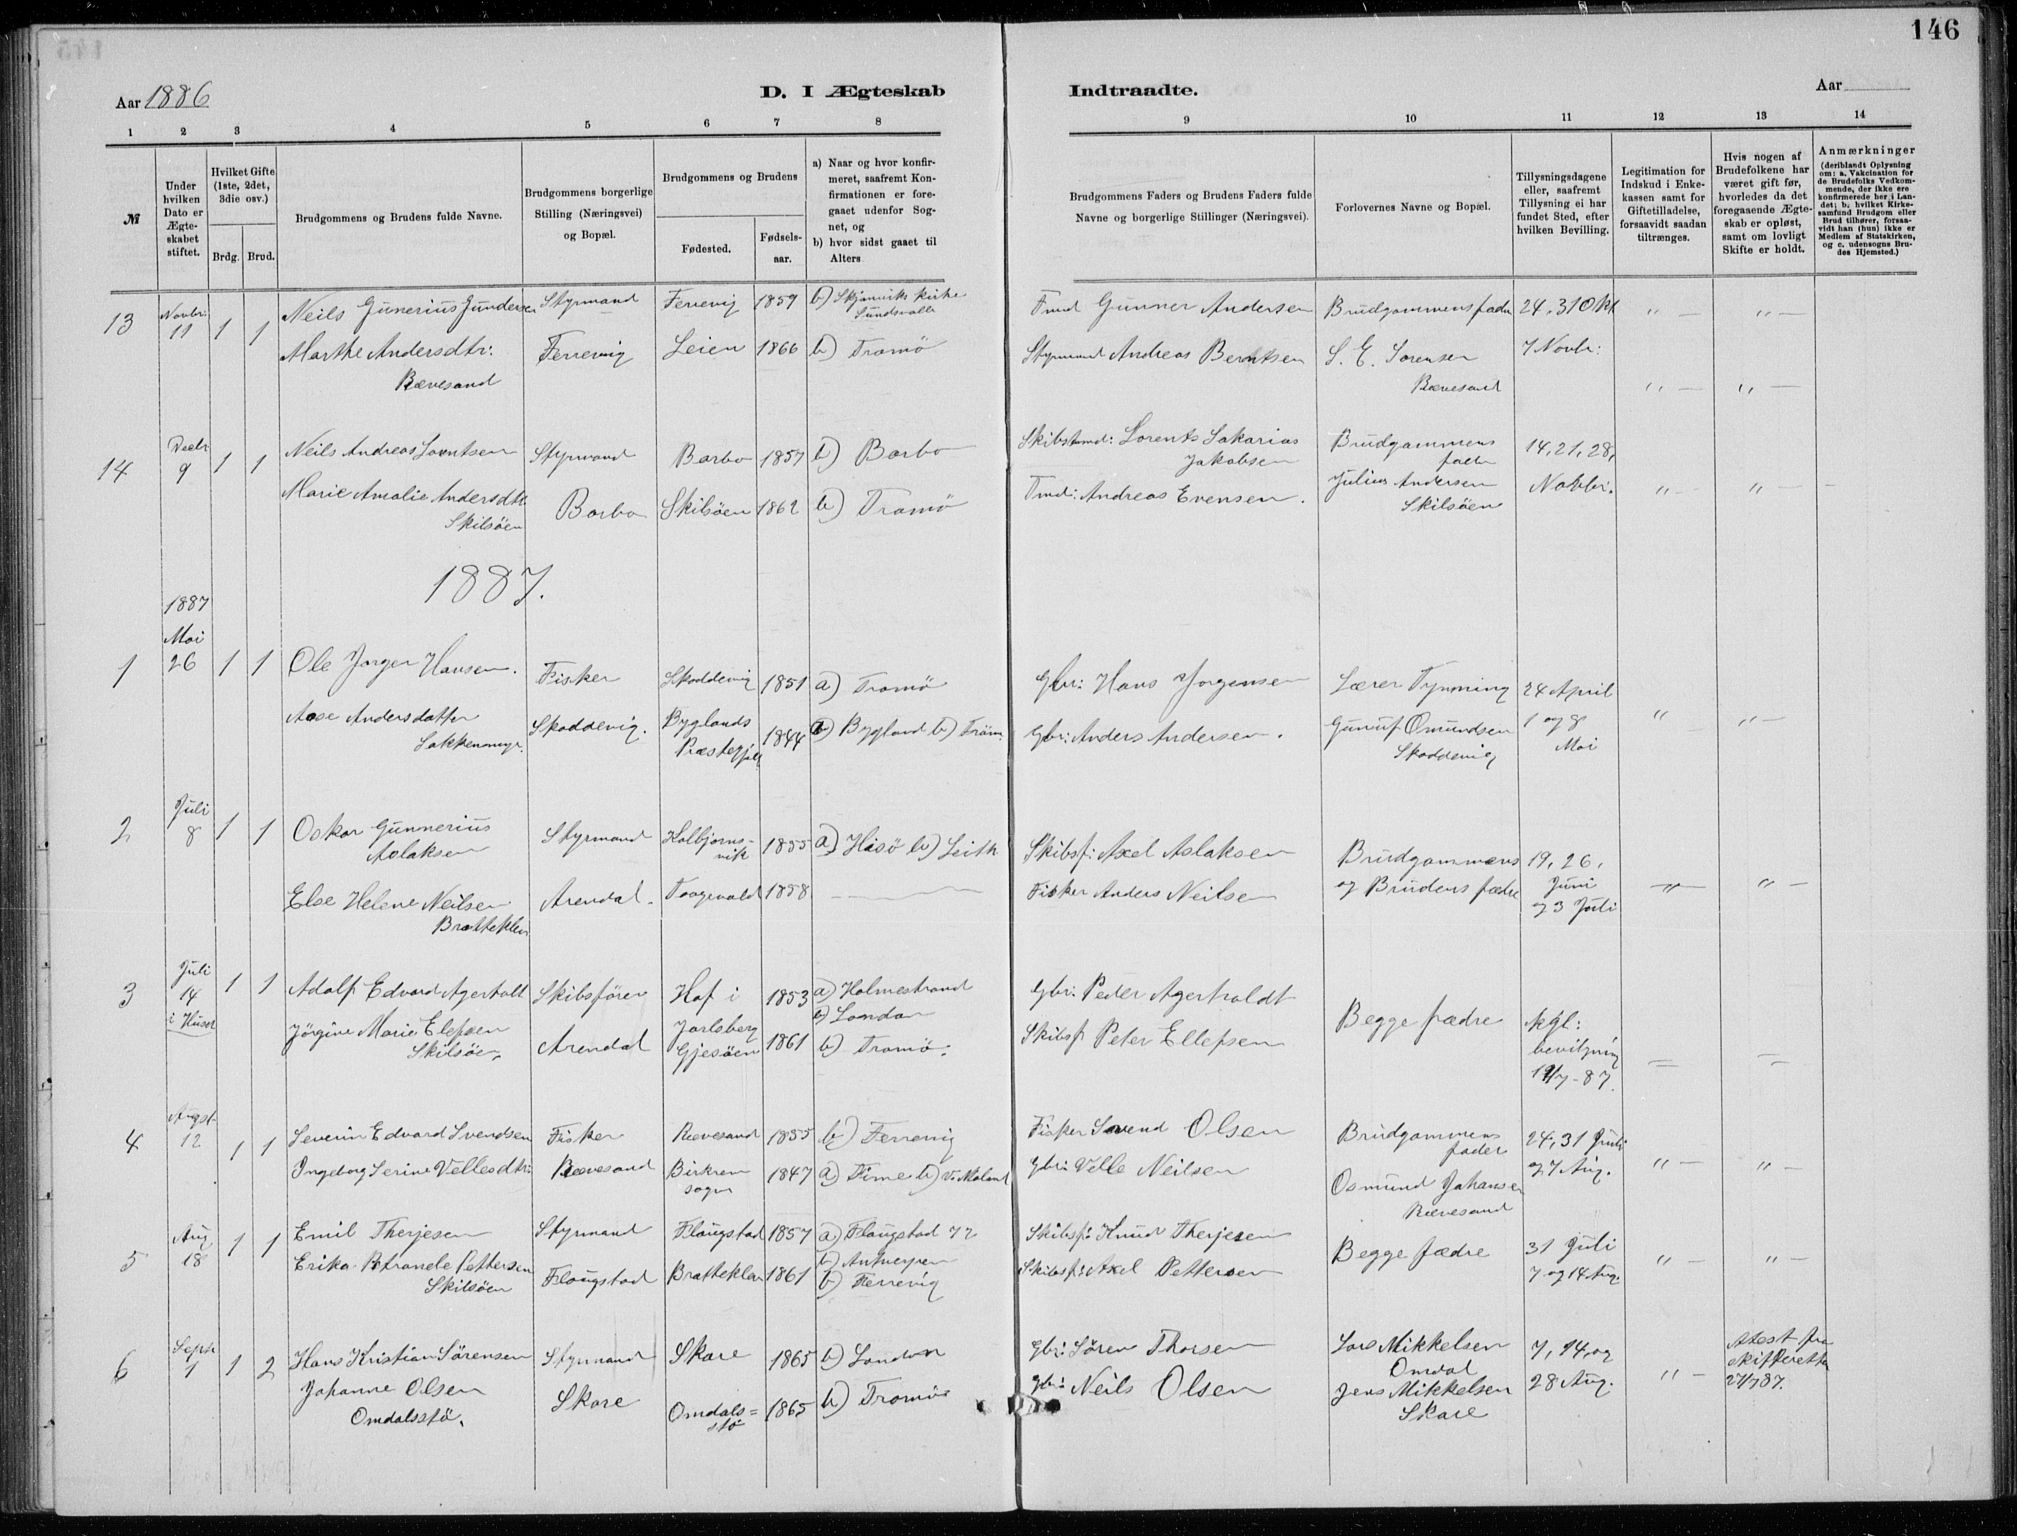 146
Aar 1886
D. I Ægteskab
Indtraadte.
Aar
1 2 3 4 5 6 7 8 9 10 11 12 13 14
№
Under hvilken Dato er Ægteskabet stiftet.
Hvilket Gifte (1ste, 2det, 3die osv.)
Brdg. Brud.
Brudgommens og Brudens fulde Navne.
Brudgommens borgerlige Stilling (Næringsvei) og Bopæl.
Brudgommens og Brudens
Fødested.
Fødselsaar.
a) Naar og hvor konfirmeret, saafremt Konfirmationen er foregaaet udenfor Sognet, og
b) hvor sidst gaaet til Alters
Brudgommens Faders og Brudens Faders fulde Navne og borgerlige Stillinger (Næringsvei).
Forlovernes Navne og Bopæl.
Tillysningsdagene eller, saafremt Tillysning ei har fundet Sted, efter hvilken Bevilling.
Legitimation for Indskud i Enkekassen samt for Giftetilladelse, forsaavidt saadan tiltrænges.
Hvis nogen af Brudefolkene har været gift før, hvorledes da det foregaaende Ægteskab er opløst, samt om lovligt Skifte er holdt.
Anmærkninger (deriblandt Oplysning om: a. Vakcination for de Brudefolks Vedkommende, der ikke ere konfirmerede her i Landet; b. hvilket Kirkesamfund Brudgom eller Brud tilhører, forsaavidt han (hun) ikke er Medlem af Statskirken, og c. udensogns Brudes Hjemsted.)
13 Novbr: 11 1 1 Neils Gunerius Gundersen Styrmand Ferrevig 1859 b) Skjønviks Kirke Sundsvalls Tmd Gunner Andersen Brudgommens fader 24, 31 Okt " — " —
Marthe Andersdtr: Ferrevig Leien 1866 b) Tromö Styrmand Andreas Berntsen S. E. Sorensen 7 Novbr:
Rævesand Rævesand " — " —
14 Decbr 9 1 1 Neils Andreas Lorntsen Styrmand Barbo 1857 b) Barbo Skibstmd: Lorents Sakarias Jakobsen Brudgommens fader 14, 21, 28,
Marie Amalie Andersdtr Barbo Skilsöen 1862 b) Tromö Tmd: Andreas Evensen. Julius Andersen Novbr. " — " —
Skilsöen Skilsöen
1887.
1887
1 Mai 26 1 1 Ole Jorgen Hansen. Fisker Skoddevig 1851 a) Tromö Gbr: Hans Jorgensen Lærer Tynming 24 April
Aase Andersdatter Skoddevig. Byglands Præstegjæld 1844 a) Bygland b) Tröm. Gbr: Anders Andersen. Osmundsen 1 og 8 " " —
Skoddevig Mai
2 Juli 8 1 1 Oskar Gunnerius Aslaksen Styrmand Kolbjornsvik 1855 a) Hisö b) Leith Skibsf: Axel Aslaksen Brudgommens 19, 26,
Else Helene Neilsen Arendal. 1858 — Fisker Anders Neilsen og Brudens fædre Juni og 3 Juli — " —
Bratteklev
3 Juli 14 i Huset 1 1 Adolf Edvard Agerholt Skibsförer Hof i Jarlsberg 1853 a) Holmestrand b) London Gbr: Peder Agerholdt Begge fædre kgl: bevilgning
Jörgine Marie Elefsen Arendal Gjesöen 1861 b) Tromö. Skibsf. Peter Ellefsen
Skilsöen.
4 Augst. 12 1 1 Severin Edvard Svendsen Fisker Rævesand 1855 b) Ferrevig Fisker Svend Olsen Brudgommens fader 24, 31 Juli
Ingeborg Serine Vellesdtr: Rævesand Birkrem sogn 1847 a) Time b) V. Moland Gbr: Velle Neilsen Osmund Johansen og 7 Aug. " — " —
Rævesand
5 Aug 18 1 1 Emil Therjesen Styrmand Flaugstad 1857 a) Flaugstad 72 b) Antverpen Skibsf: Knud Therjesen Begge fædre 31 Juli
Erika Pettersen Flaugstad Bratteklev 1861 b) Ferrevig Skibsf: Axel Pettersen 7 og 14 Aug. " — " —
Skilsöen
6 Septr 1 1 2 Hans Kristian Sörensen Styrmand Skare 1865 b) London Gbr: Sören Thorsen Lars Mikkelsen Omdal 7, 14, og Atest fra Skifteretten
Johanne Olsen Skare Omdalsstö 1865 b) Tromö Gbr: Neils Olsen Jens Mikkelsen 28 Aug. " —
Omdalsstö. Skare